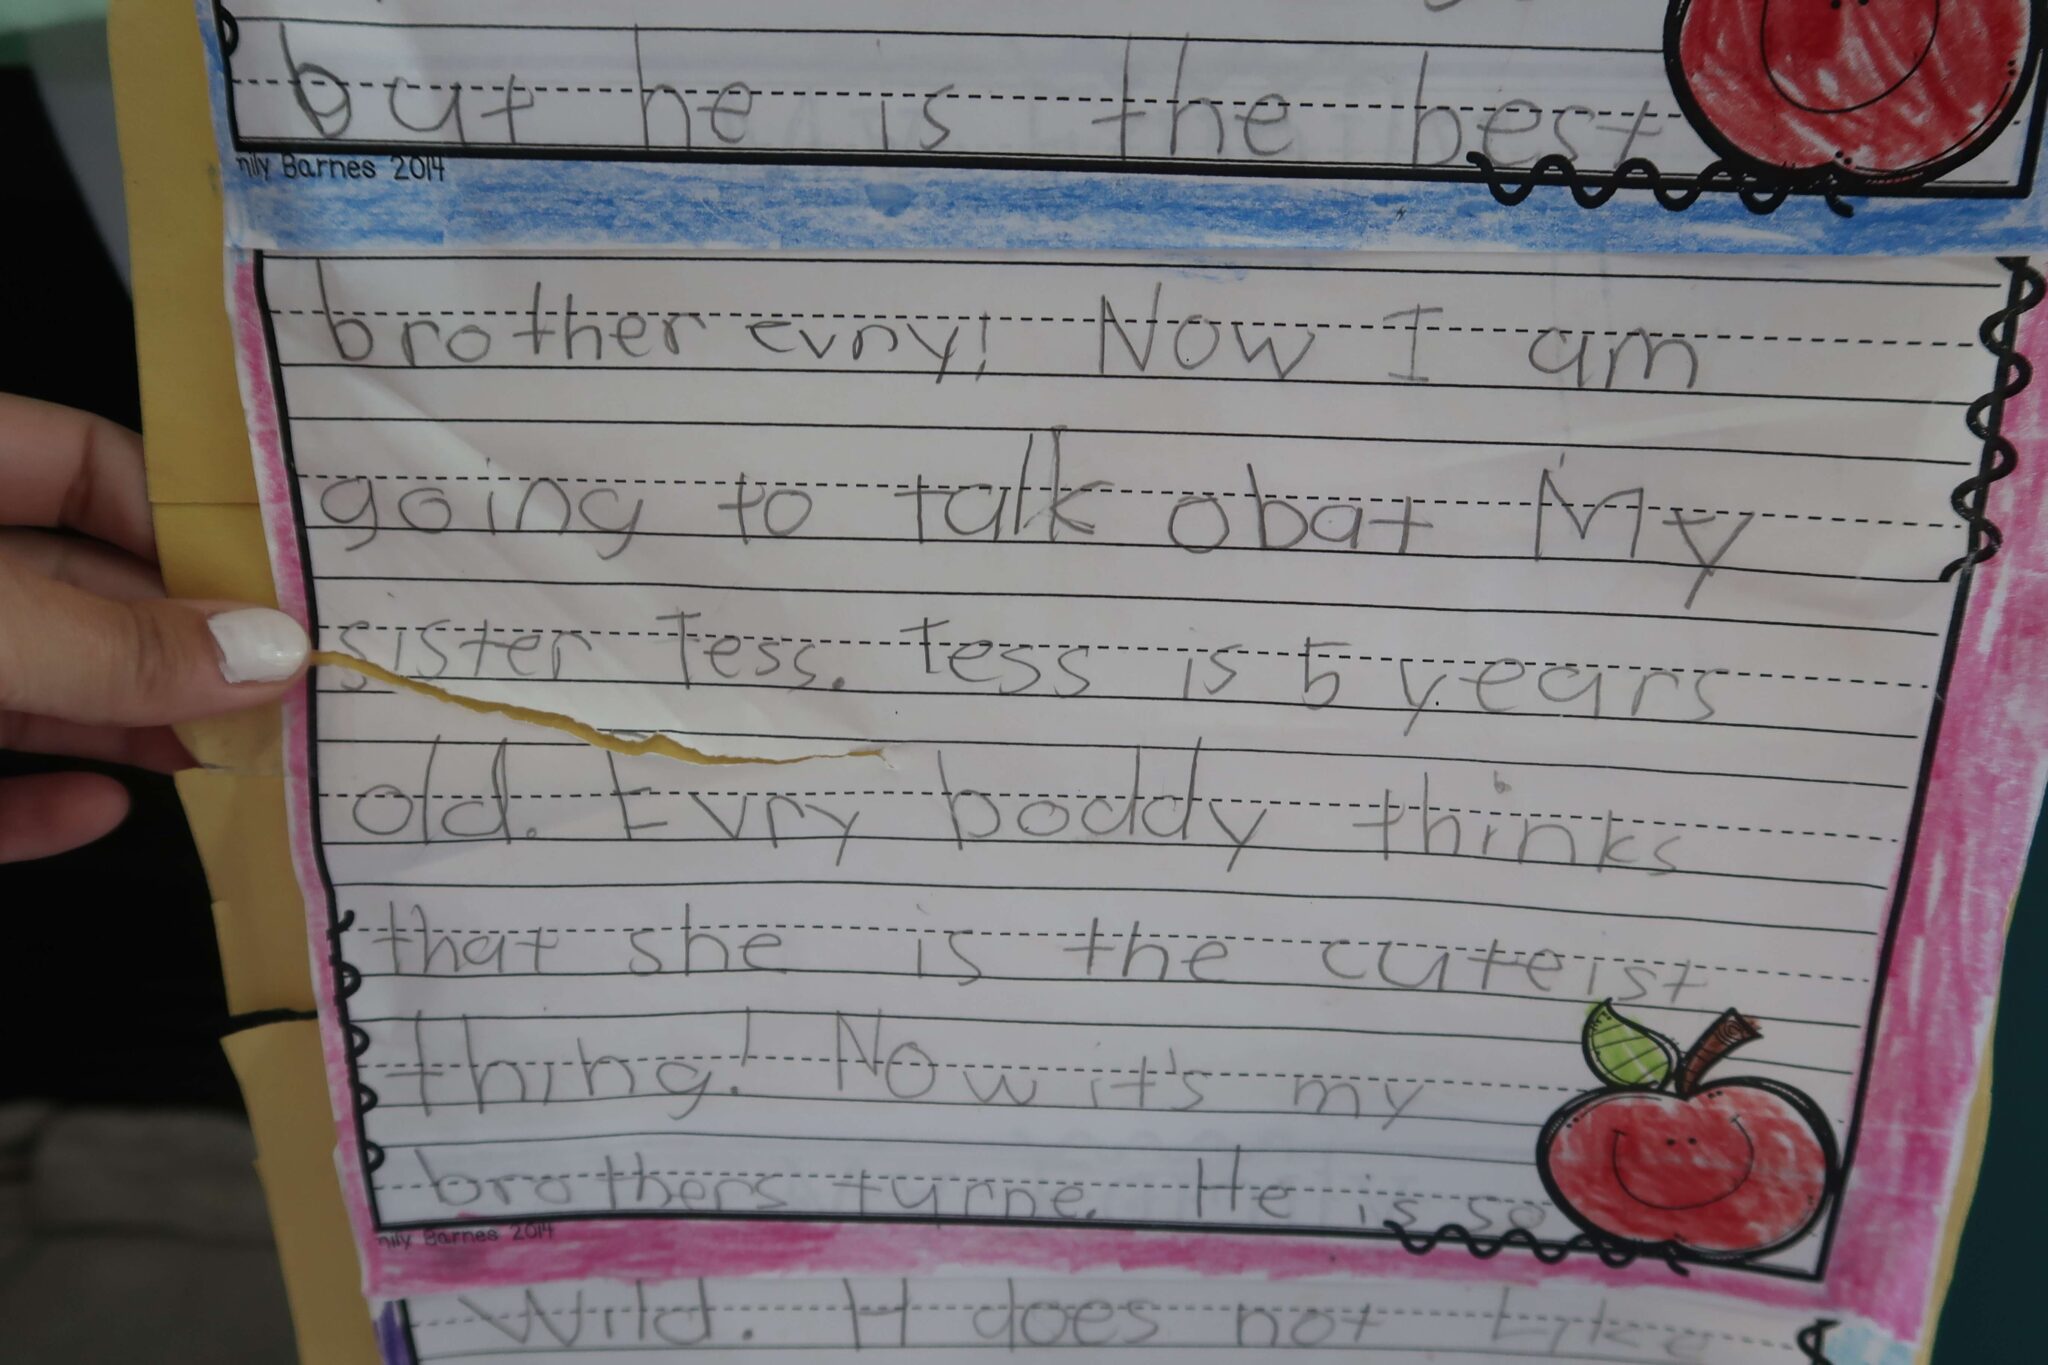 but he is the best
nily Barnes 2014
brother evny! Now I am
going to talk obat My
sister Tess. Tess is 5 years
old. Evry boddy thinks
that she is the cuteist
thing! Now it's my
brothers turne. He is so
nily Barnes 2014
Wild. H does not like